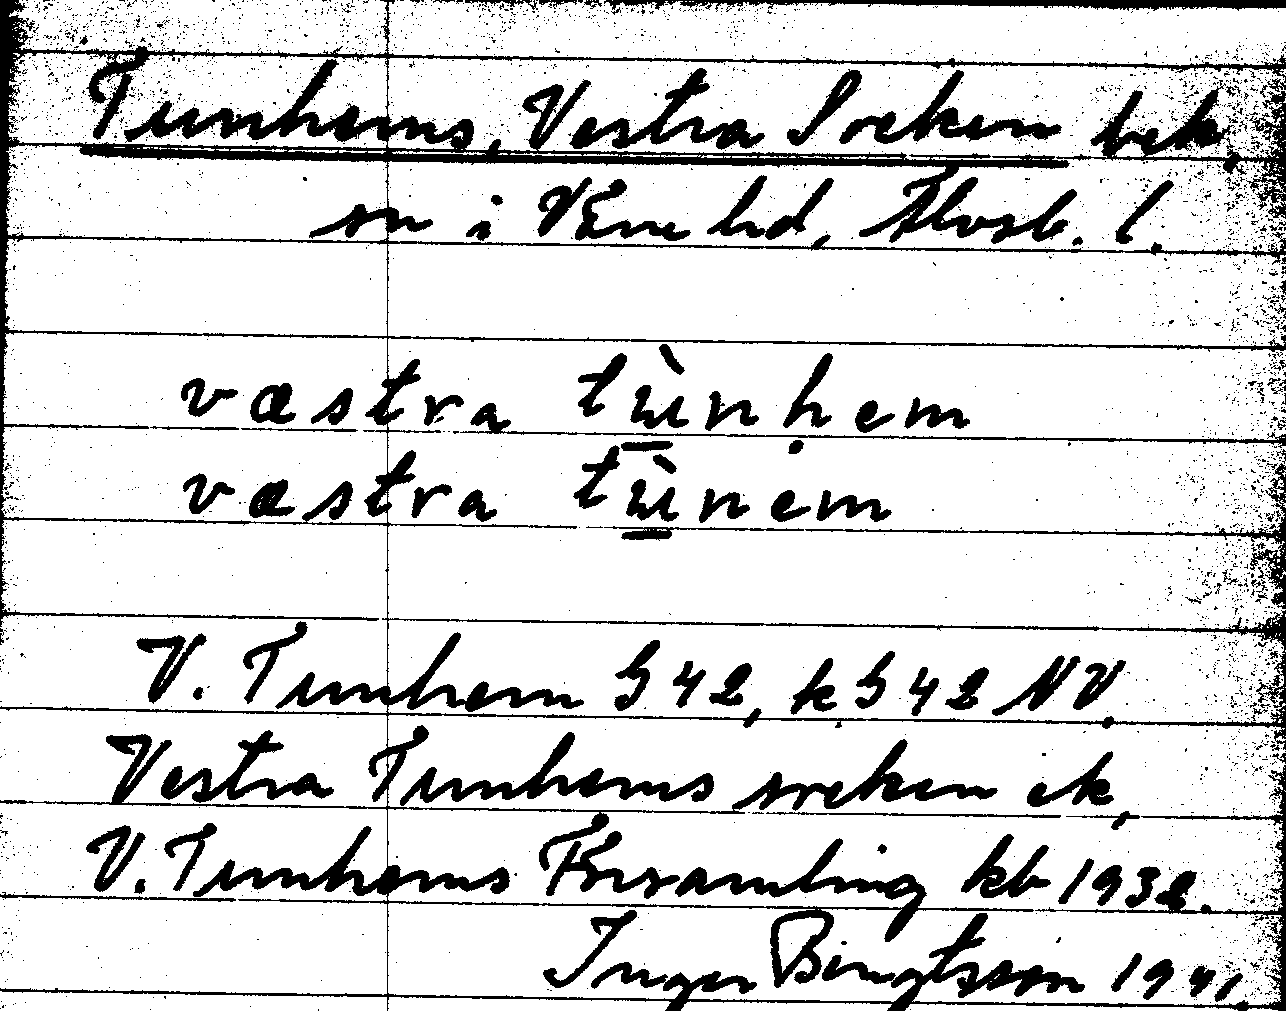 Tunhems, Vestra Socken bek,
sn i Väne hd, Älvsb. l.
væstra tù̲nḥem
væstra tù̲nem
V. Tunhem G 42, k G 42 NV.
Vestra Tunhems socken ek,
V. Tunhems Församling kb 1932.
Inger Bengtsson 1941.